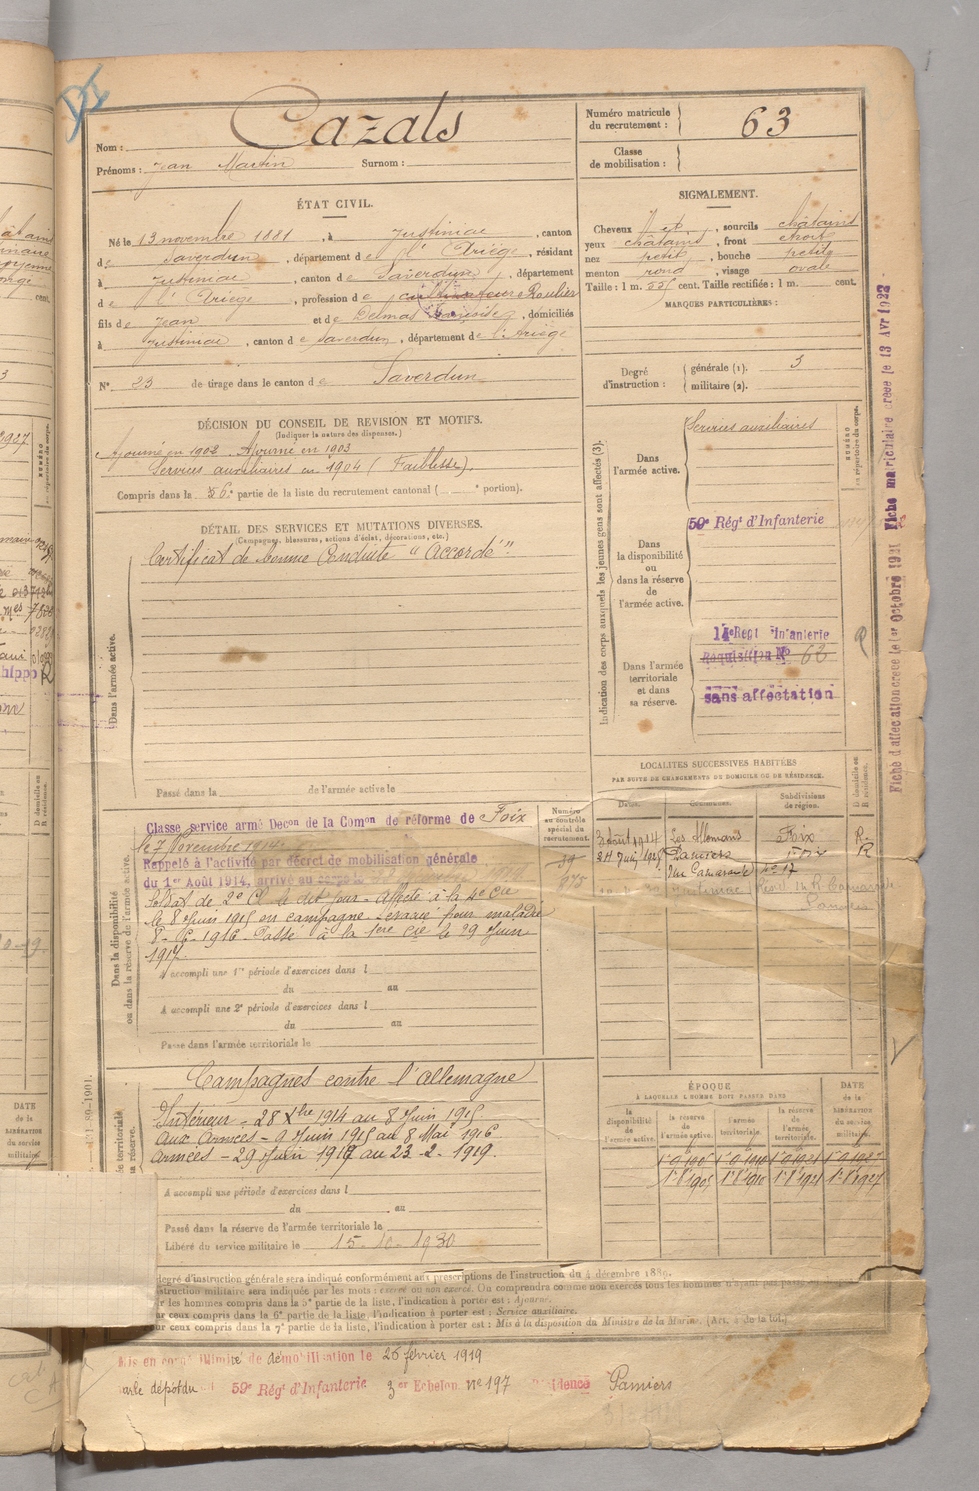 Nom : Cazals
Prénoms : Jean Martin Surnom :
Numéro matricule du recrutement : 63
Classe de mobilisation :
ÉTAT CIVIL.
Né le 13 novembre 1881, à Justiniac, canton
de Saverdun, département de l'Ariège, résidant
à Justiniac, canton de Saverdun, département
de l'Ariège, profession de cultivateur Roulier
fils de Jean et de Delmas Françoise, domiciliés
à Justiniac, canton de Saverdun, département de l'Ariège
N° 23 de tirage dans le canton de Saverdun
SIGNALEMENT.
Cheveux , sourcils châtains
yeux châtains, front étroit
nez petit, bouche petite
menton rond, visage ovale
Taille : 1 m. cent. Taille rectifiée : 1 m. cent.
MARQUES PARTICULIÈRES :
Degré d'instruction : générale (1). 3
militaire (2).
DÉCISION DU CONSEIL DE REVISION ET MOTIFS.
(Indiquer la nature des dispenses.)
Ajourné en 1902. Ajourné en 1903
Services auxiliaires en 1904 (Faiblesse).
Compris dans la 6e partie de la liste du recrutement cantonal ( portion).
DÉTAIL DES SERVICES ET MUTATIONS DIVERSES.
(Campagnes, blessures, actions d'éclat, décorations, etc.)
Dans l'armée active.
Certificat de bonne Conduite "Accordé".
Passé dans la de l'armée active le
Indication des corps auxquels les jeunes gens sont affectés (3).
NUMÉRO au répertoire du corps.
Dans l'armée active.
Services auxiliaires
Dans la disponibilité ou dans la réserve de l'armée active.
59e Régt d'Infanterie
Dans l'armée territoriale et dans sa réserve.
14e Régt Infanterie
Réquisition N° 62
sans affectation
Fiche d'affectation créée le 1er Octobre 1921 Fiche matriculaire créée le 13 Avr 1922
LOCALITÉS SUCCESSIVES HABITÉES
PAR SUITE DE CHANGEMENTS DE DOMICILE OU DE RÉSIDENCE.
Dates. Communes. Subdivisions de région. D domicile ou R résidence.
3 août 1914 Les Allemans Foix R
Pamiers Foix R
Dans la disponibilité ou dans la réserve de l'armée active.
Numéro au contrôle spécial du recrutement.
Classé service armé Decon de la Comon de réforme de Foix
le 7 Novembre 1914.
Rappelé à l'activité par décret de mobilisation générale
du 1er Août 1914, arrivé au corps le
Soldat de 2e Cl. le dit jour. Affecté à la 4e Cie
le 8 Juin 1915 en campagne. Evacué pour maladie
8-6-1916. Passé à la 1ere Cie le 29 Juin
1917.
A accompli une 1re période d'exercices dans l
du au
A accompli une 2e période d'exercices dans l
du au
Passé dans l'armée territoriale le
Campagnes contre l'Allemagne
Intérieur - 28 Xbre 1914 au 8 Juin 1915
Aux Armées - 9 Juin 1915 au 8 Mai 1916
Armées - 29 Juin 1917 au 23-2-1919.
A accompli une période d'exercices dans l
du au
Passé dans la réserve de l'armée territoriale le
Libéré du service militaire le 15-10-1930
ÉPOQUE
À LAQUELLE L'HOMME DOIT PASSER DANS
la disponibilité de l'armée active. la réserve de l'armée active. l'armée territoriale. la réserve de l'armée territoriale. DATE de la LIBÉRATION du service militaire.
1er 8bre 1905 1er 8bre 1921 1er 8bre 1927
degré d'instruction générale sera indiqué conformément aux prescriptions de l'instruction du 4 décembre 1889.
struction militaire sera indiquée par les mots : exercé ou non exercé. On comprendra comme non exercés tous les hommes n'ayant pas passé
ur les hommes compris dans la 5e partie de la liste, l'indication à porter est : Ajourné.
ur ceux compris dans la 6e partie de la liste, l'indication à porter est : Service auxiliaire.
ur ceux compris dans la 7e partie de la liste, l'indication à porter est : Mis à la disposition du Ministre de la Marine.
Mis en congé illimité de démobilisation le 26 février 1919
par le dépôt du 59e Régt d'Infanterie 3e Echelon N° 197 Résidence Pamiers